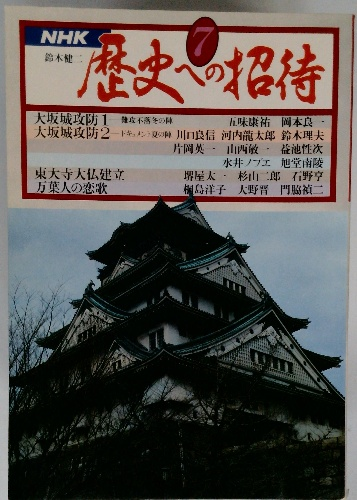 NHK
鈴木健二
7
歴史への招待
大坂城攻防1―難攻不落冬の陣 五味康祐 岡本良一
大坂城攻防2―ドキュメント夏の陣 川口良信 河内龍太郎 鈴木理夫
片岡英一 山西敏一 益池性次
水井ノブエ 旭堂南陵
東大寺大仏建立 堺屋太一 杉山二郎 石野亨
万葉人の恋歌 桐島洋子 大野晋 門脇禎二